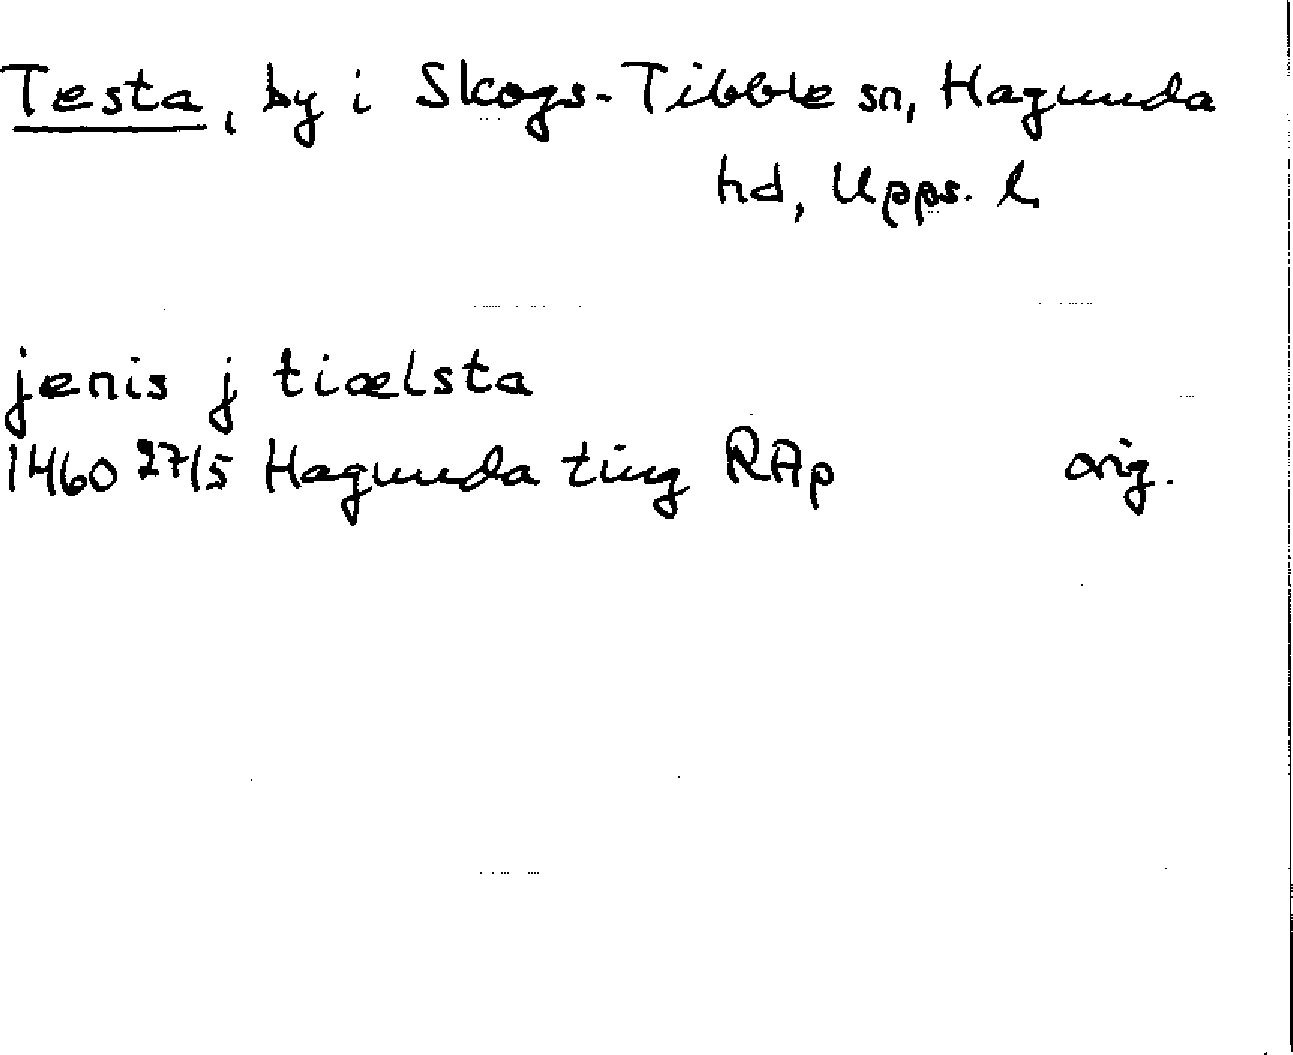 Testa, by i Skogs-Tibble sn, Hagunda
hd, Upps. l
jenis j tiælsta
1460 27/5 Hagunda ting RAp orig.